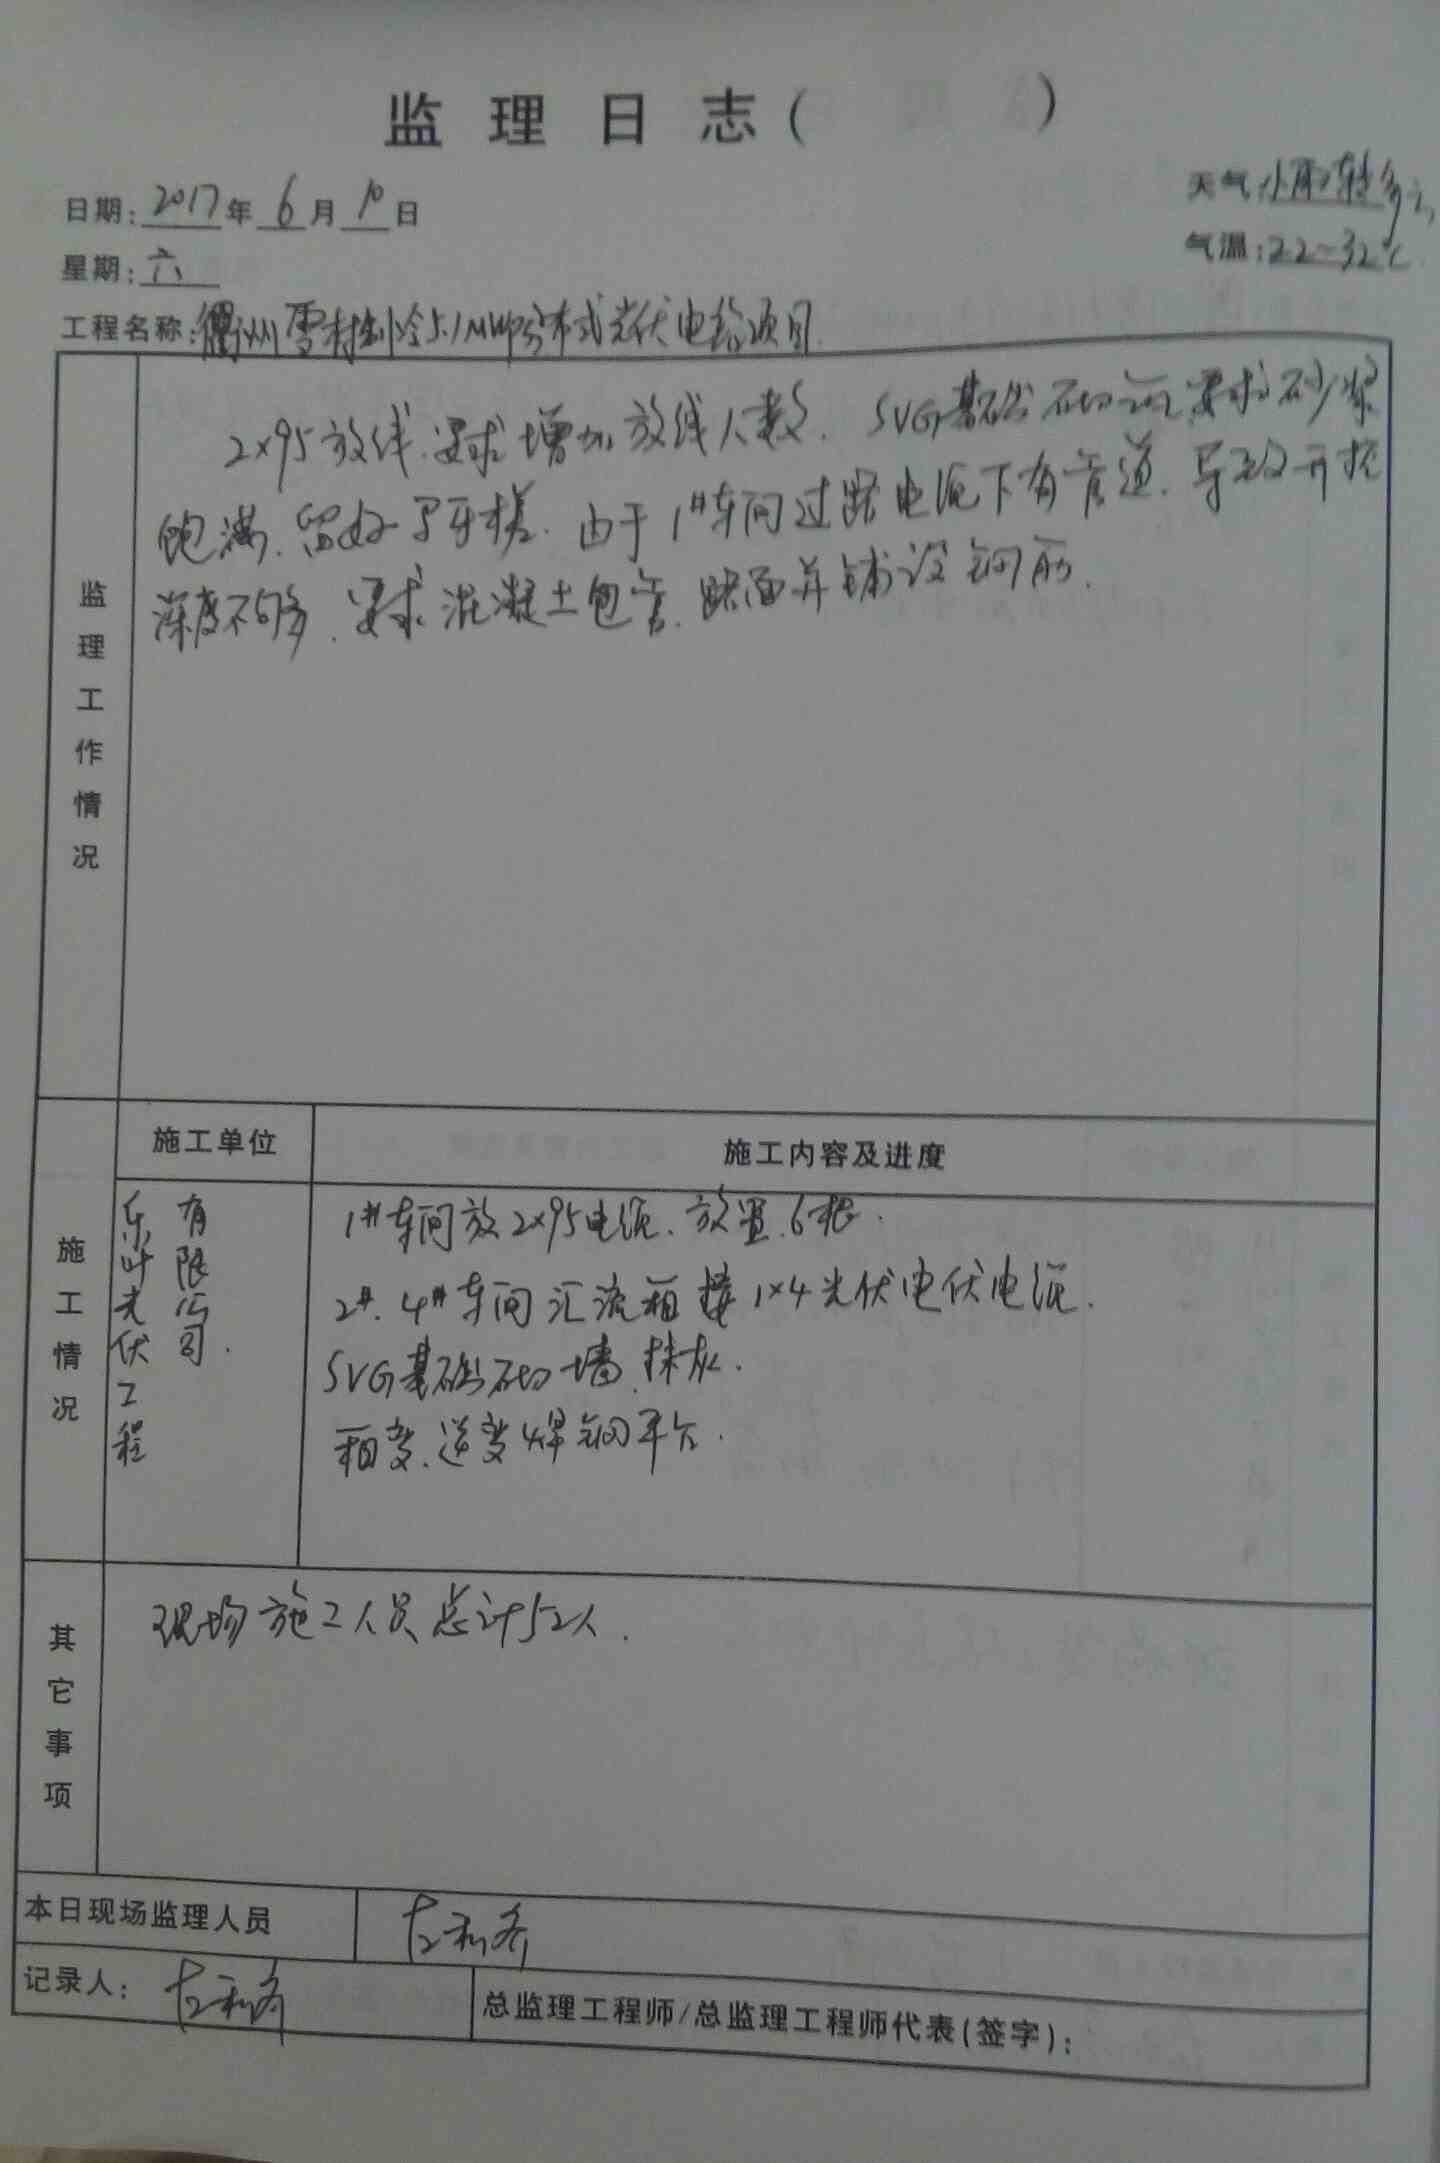 监理日志( )
日期:2017年6月10日
天气:小雨转多云
星期:六
气温:22~32℃
工程名称:衢州雪村制冷5.1MWP分布式光伏电站项目
监理工作情况
2×95放线.要求增加放线人数. SVG基础砌砖要求砂浆
饱满.留好马牙槎.由于1#车间过路电缆下有管道.导致开挖
深度不够.要求混凝土包管.路面并铺设钢筋.
施工情况
施工单位
施工内容及进度
乐叶光伏工程
有限公司.
1#车间放2×95电缆.放置6根.
2#.4#车间汇流箱接1×4光伏电伏电缆.
SVG基础砌墙.抹灰.
箱变.逆变焊钢平台.
其它事项
现场施工人员总计52人.
本日现场监理人员
记录人:
总监理工程师/总监理工程师代表(签字):